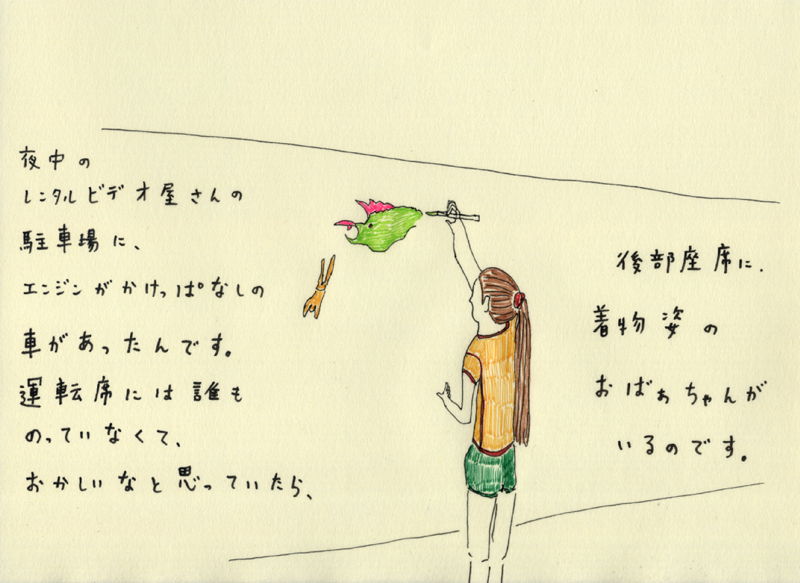 夜中の
レンタルビデオ屋さんの
駐車場に、
エンジンがかけっぱなしの
車があったんです。
運転席には誰も
のっていなくて、
おかしいなと思っていたら、
後部座席に、
着物姿の
おばぁちゃんが
いるのです。